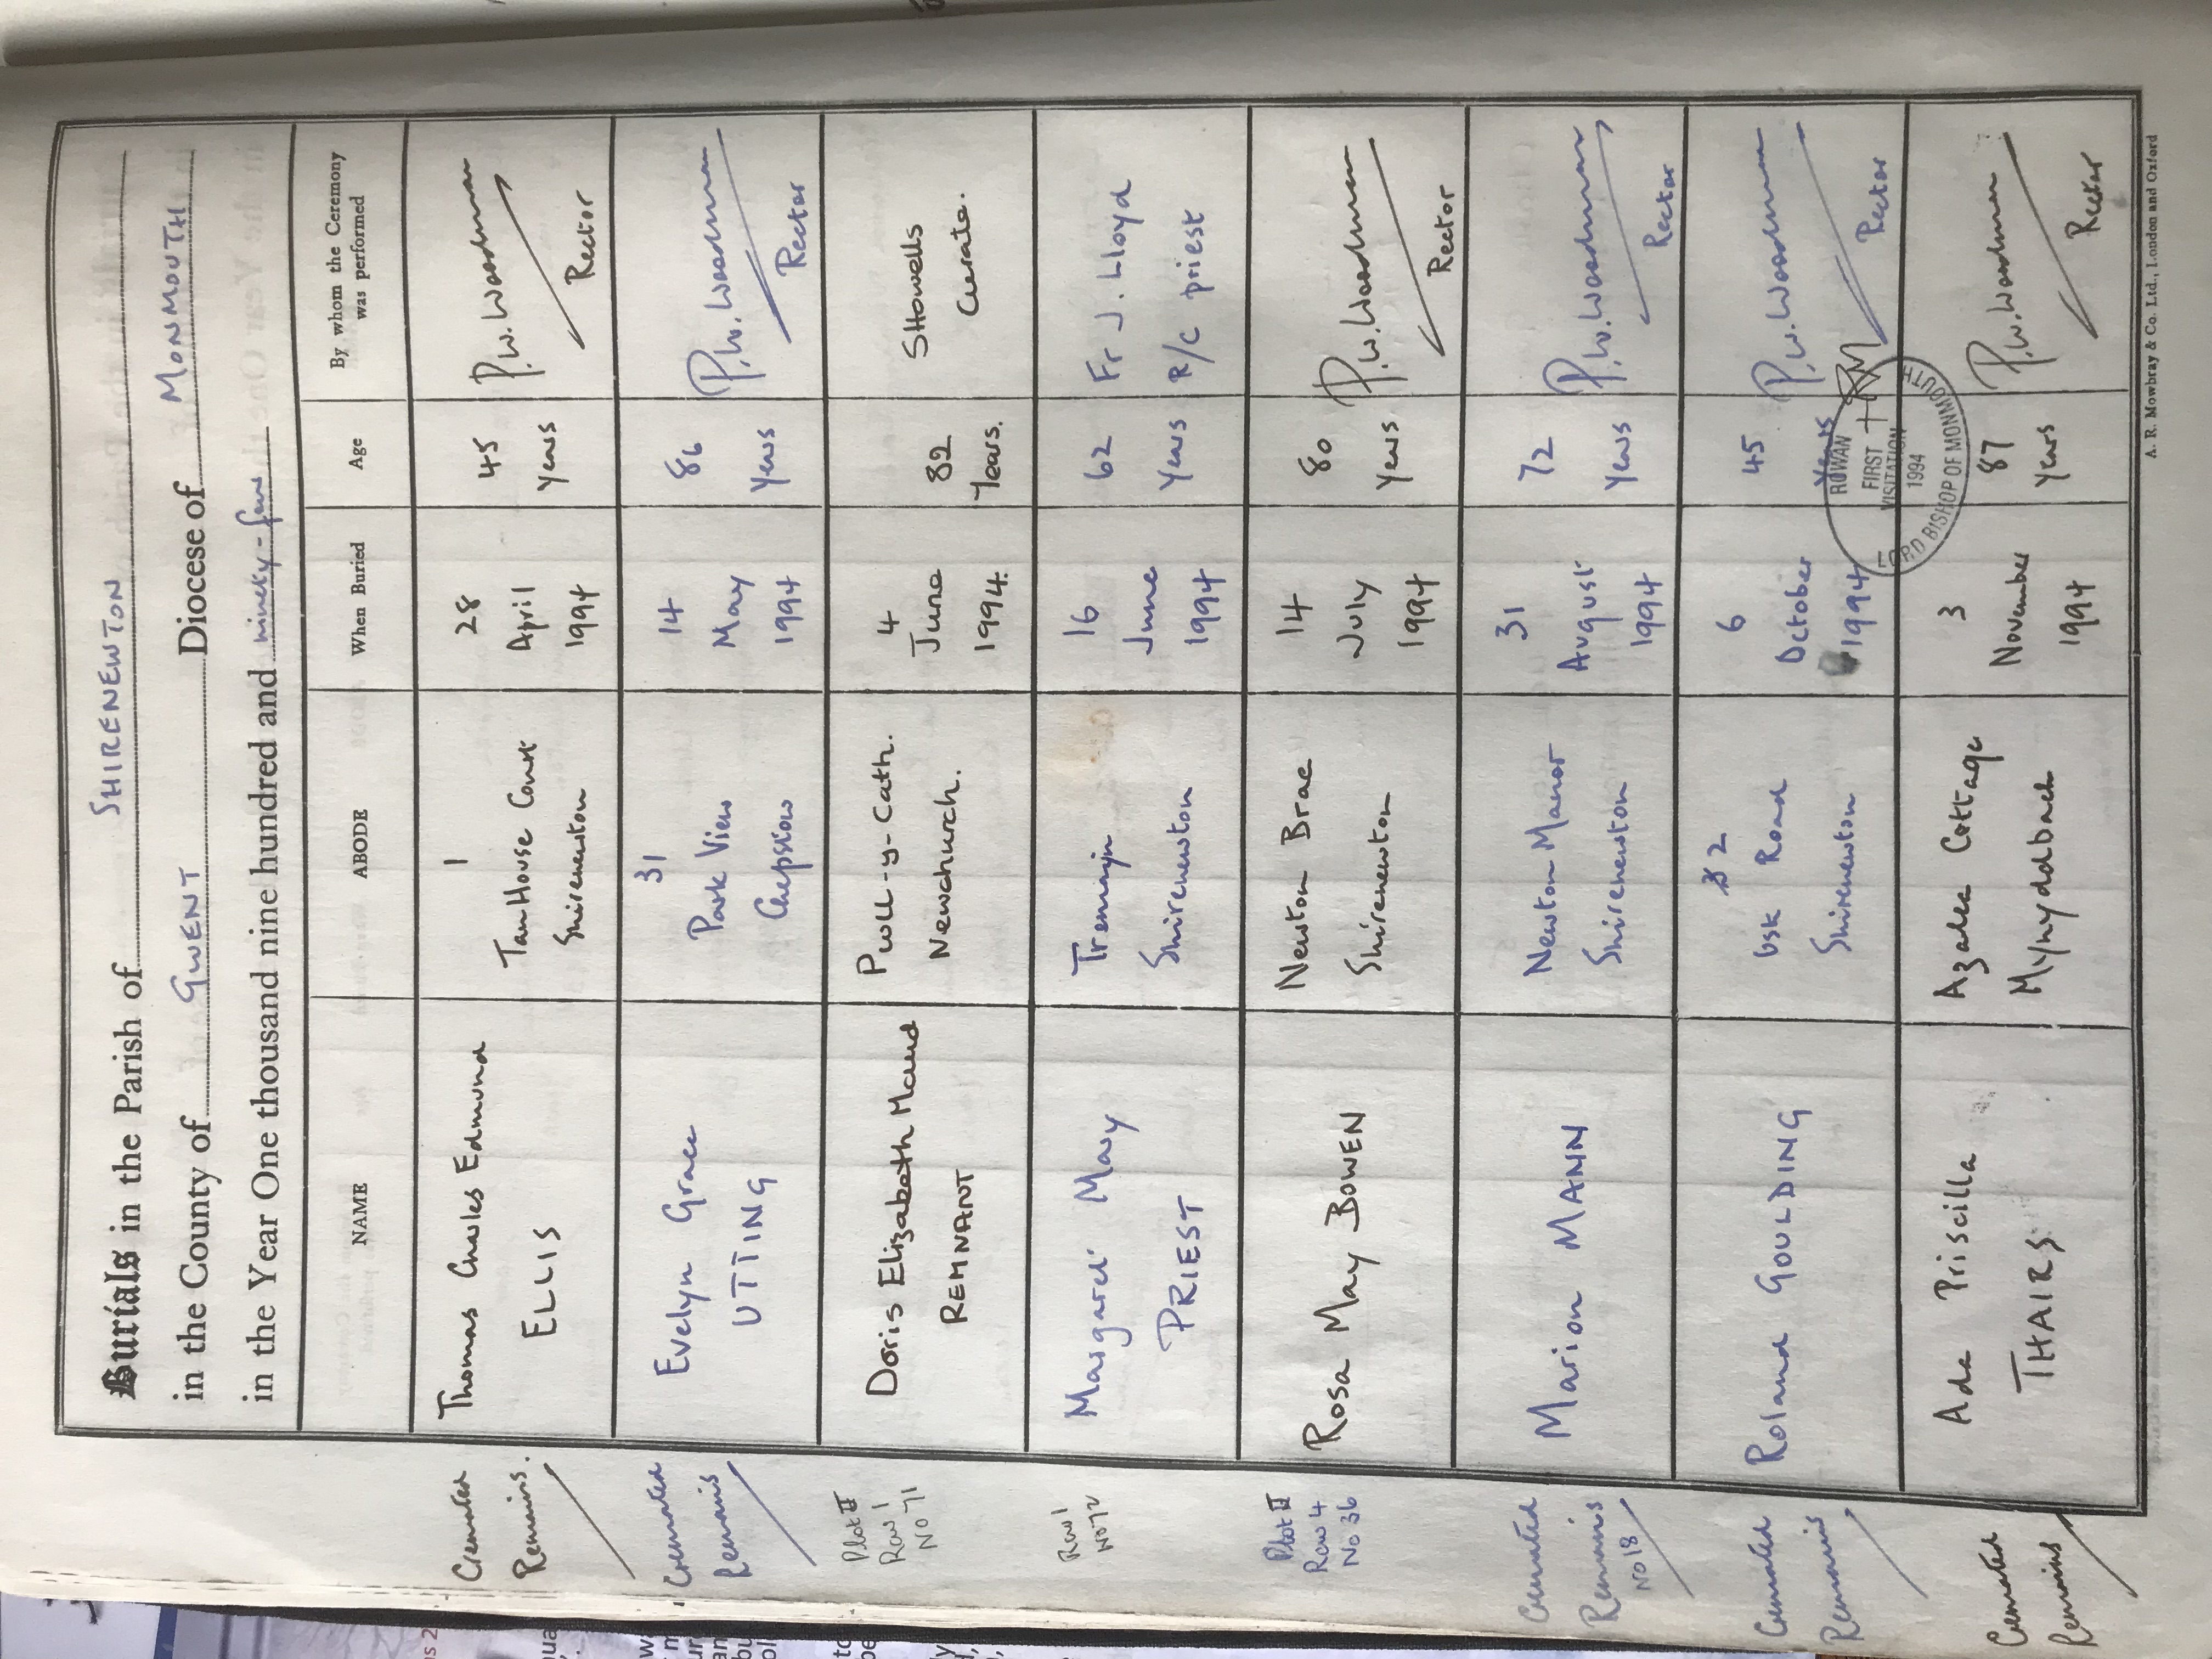 Burials in the Parish of SHIRENEWTON
in the County of GWENT Diocese of MONMOUTH
in the Year One thousand nine hundred and ninety-four
NAME ABODE When Buried Age By whom the Ceremony was performed
Cremated
Remains.
Thomas Charles Edmund
ELLIS
1
Tan House Court
Shirenewton
28
April
1994
45
Years
P.W. Woodman
Rector
Cremated
Remains
Evelyn Grace
UTTING
31
Park View
Chepstow
14
May
1994
86
Years
P.W. Woodman
Rector
Plot II
Row 1
No 71
Doris Elizabeth Maud
REMNANT
Pwll-y-Cath.
Newchurch.
4
June
1994.
82
Years.
SHowells
Curate.
Row 1
No 72
Margaret Mary
PRIEST
Tremayin
Shirenewton
16
June
1994
62
Years
Fr J. Lloyd
R/C priest
Plot II
Row 4
No 36
Rosa May BOWEN
Newton Brae
Shirenewton
14
July
1994
80
Years
P.W. Woodman
Rector
Cremated
Remains
No 18
Marion MANN
Newton Manor
Shirenewton
31
August
1994
72
Years
P.W. Woodman
Rector
Cremated
Remains
Roland GOULDING
2
Usk Road
Shirenewton
6
October
1994
45
Years
P.W. Woodman
Rector
ROWAN
FIRST
VISITATION
1994
LORD BISHOP OF MONMOUTH
Cremated
Remains
Ada Priscilla
THAIRS.
Azalea Cottage
Mynyddbach
3
November
1994
87
Years
P.W. Woodman
Rector
A. R. Mowbray & Co. Ltd., London and Oxford